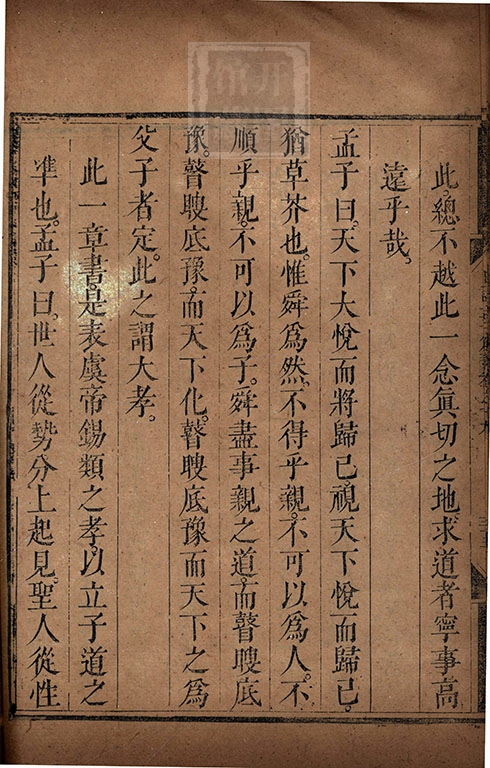 此總不越此一念眞切之地求道者寧事高
遠乎哉。
孟子曰。天下大悅而將歸己。視天下悅而歸己。
猶草芥也。惟舜爲然。不得乎親。不可以爲人。不
順乎親。不可以爲子。舜盡事親之道。而瞽瞍底
豫。瞽瞍底豫。而天下化。瞽瞍底豫而天下之爲
父子者定。此之謂大孝。
此一章書。是表虞帝錫類之孝。以立子道之
準也。孟子曰。世人從勢分上起見。聖人從性